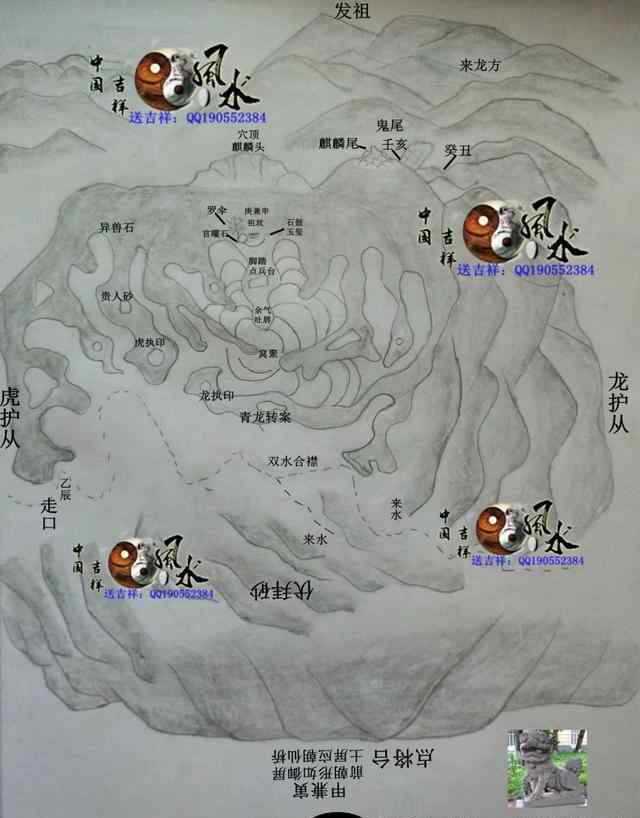 发祖
来龙方
中国
吉祥
風水
送吉祥：QQ190552384
穴顶
麒麟头
麒麟尾
鬼尾
壬亥
癸丑
异兽石
罗伞
官曜石
庚兼申
祖坟
石鼓
玉玺
中国
吉祥
風水
送吉祥：QQ190552384
脚踏
点兵台
贵人砂
余气
吐唇
虎执印
窝聚
虎护从
龙执印
龙护从
青龙转案
双水合襟
乙辰
走口
来水
来水
中国
吉祥
風水
送吉祥：QQ190552384
中国
吉祥
風水
送吉祥：QQ190552384
伏拜砂
点将台
土屏应朝仙桥
前朝形如御屏
甲兼寅